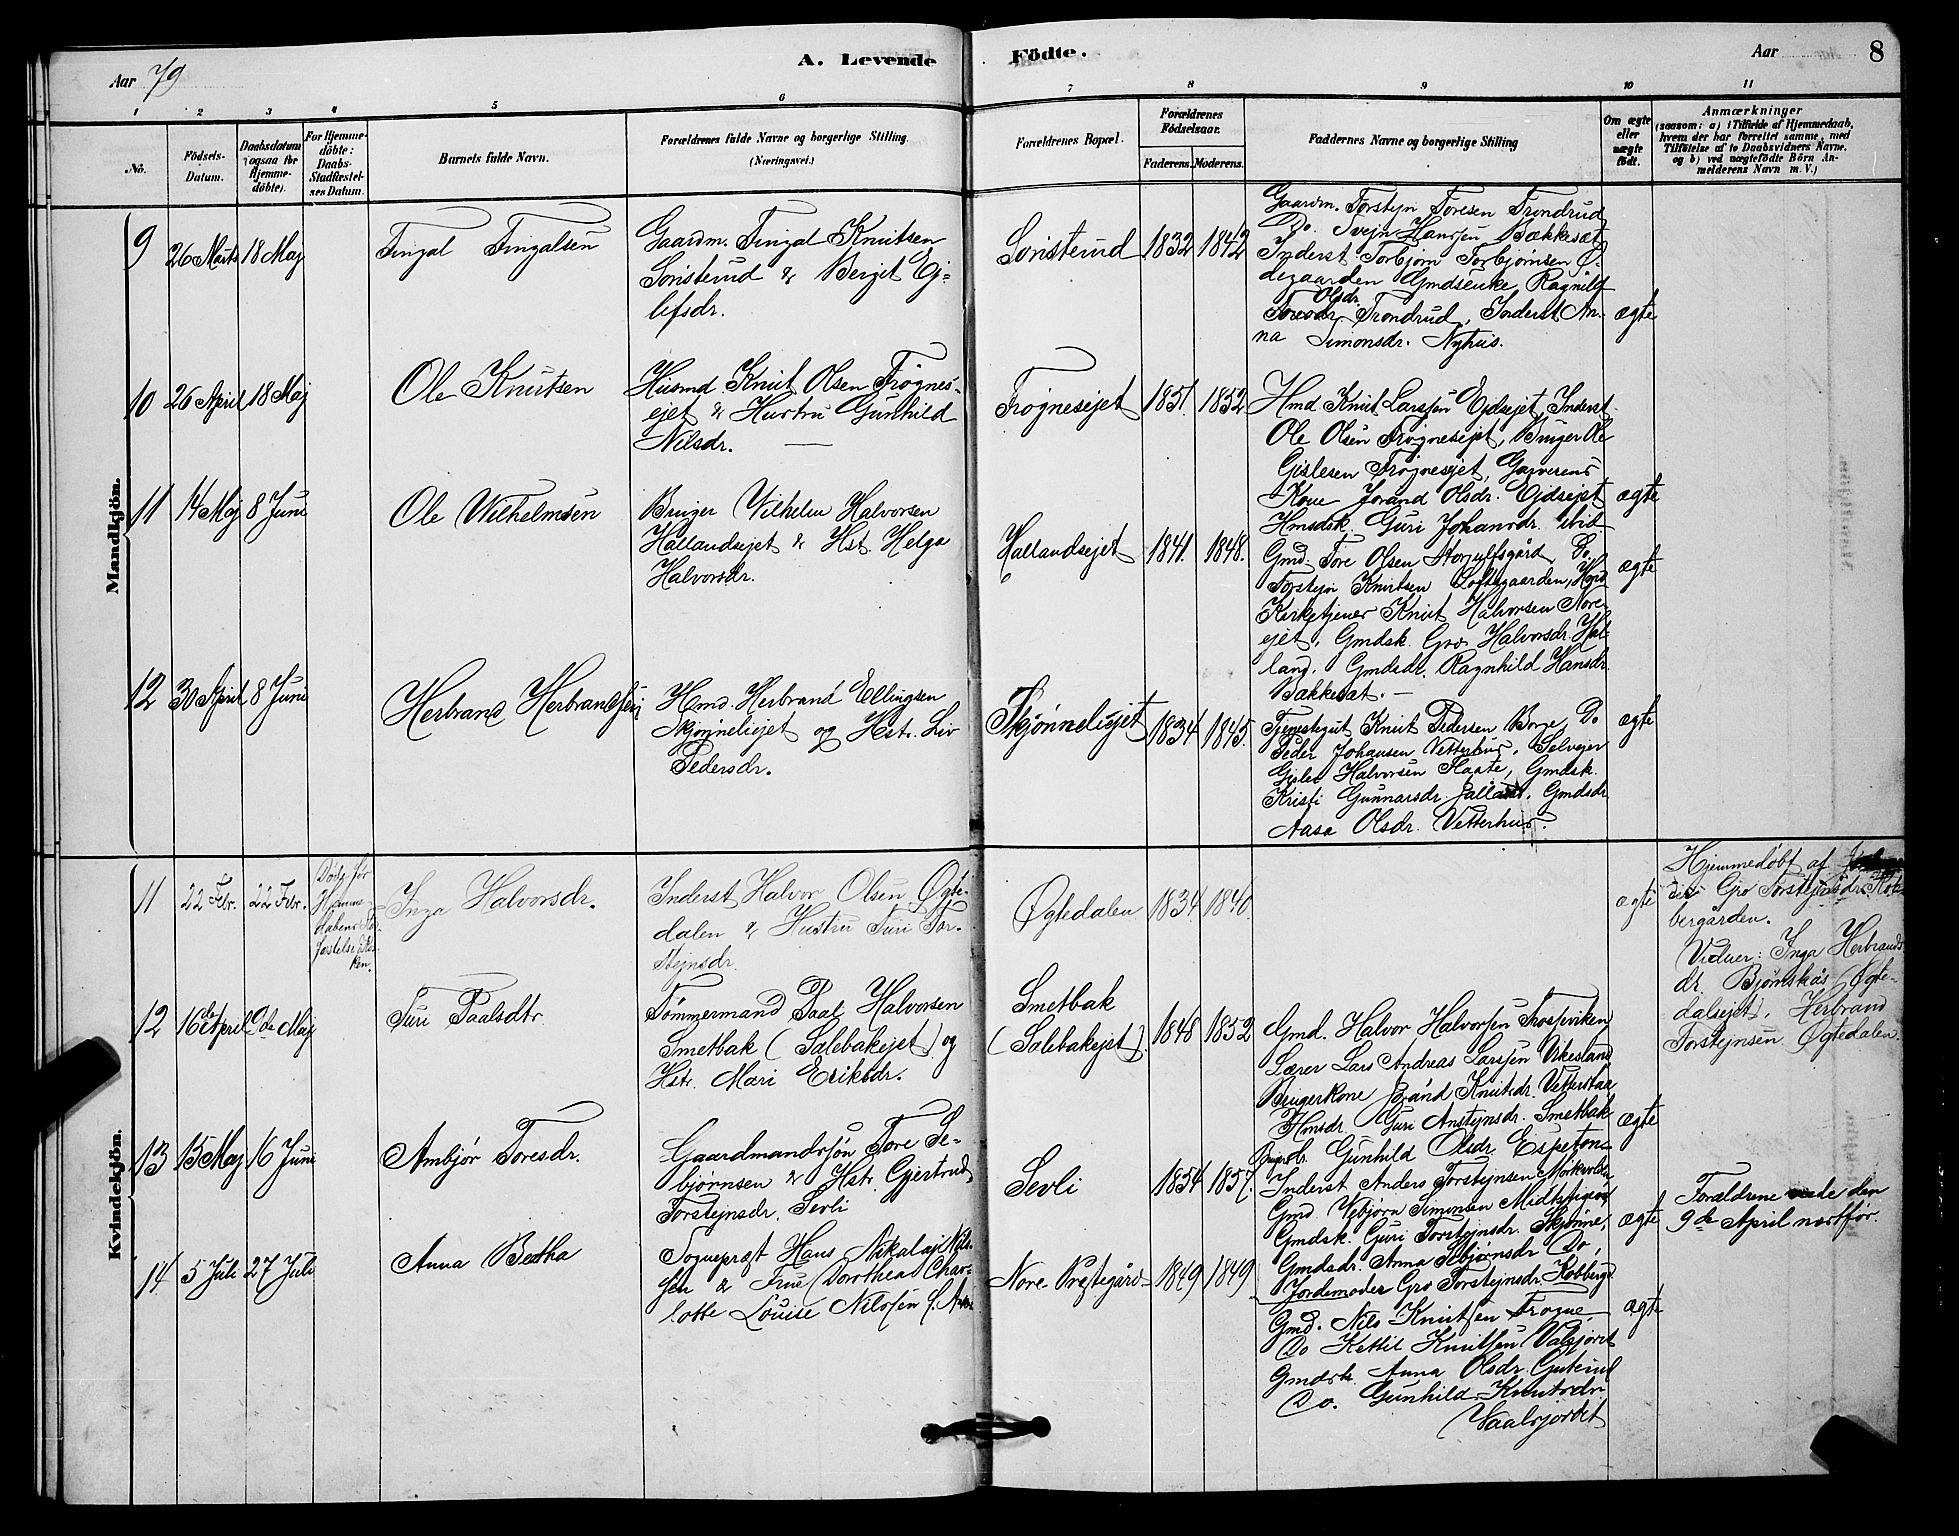 Aar 79
A. Levende Födte.
Aar
8
1 2 3 4 5 6 7 8 9 10 11
No.
Födsels-Datum.
Daabsdatum (ogsaa for Hjemmedöbte).
For Hjemmedöbte: Daabs-Stadfæstelses Datum.
Barnets fulde Navn.
Forældrenes fulde Navne og borgerlige Stilling (Næringsvei.)
Forældrenes Bopæl.
Forældrenes Födselsaar.
Faderens. Moderens.
Faddernes Navne og borgerlige Stilling
Om ægte eller uægte födt.
Anmærkninger
(saasom: a) i Tilfælde af Hjemmedaab, hvem der har forrettet samme, med Tilföielse af to Daabsvidners Navne. og b) ved uægtefödte Börn Anmelderens Navn m.V.)
Mandkjön.
9 26 Marts 18 Maj
Fingal Fingalsen
Gaardm. Fingal Knutsen
Sonsterud & Berget Ej-
lefsdr.
Sonsterud 1832 1842
Gaardm. Torstejn Toresen Trondrud
Do. Svejn Hansen Bækkesæt
Inderst Torbjørn Torbjørnsen Ø-
degaarden Gmdsenke Ragnild
Olsdr.
Toresdr. Trondrud, Inderst An-
na Simonsdr. Nyhus.
ægte
10 26 April 18 Maj
Ole Knutsen
Husmd. Knut Olsen Frøgnes-
ejet & Hustru Gunhild
Nilsdr.
Frøgnesejet 1851. 1852
Hmd Knut Larssen Ejdsejet, Inderst
Ole Olsen Frøgnesejet, Bruger Ole
Gislesen Frøjnesejet, Garverens
Kone Jorand Olsdr. Ejdsejet
Hmsdsk. Guri Johansdr. ibid
ægte
11 14 Maj 8 Juni
Ole Wilhelmsen
Bruger Vilhelm Halvorsen
Hallandsejet & Hst. Helga
Halvorsdr.
Hallandsejet 1841. 1848.
Gmd. Tore Olsen Storulfsgård, Do.
Torstejn Knutsen Loftsgaarden, Hmd
Kirketjener Knut Halvorsen Nore-
ejet, Gmdsk. Gro Halvorsdr. Hal-
land. Gmdsdr. Ragnhild Hansdr.
Bakkesat.
ægte
12 30 April 8 Juni
Herbrand Herbrandsen
Hmd. Herbrand Ellingsen
Skjønneliejet og Hstr. Liv
Pedersdr.
Skjønneliejet 1834 1845.
Tjenestegut Knut Pedersen Borge, Do
Peder Johansen Vetterhus, Selvejer
Gislee Halvorsen Slaate, Gmdsk.
Kristi Gunnarsdr. Jalland, Gmdsdr
Aasa Olsdr. Vetterhus.
ægte
Kvindekjön.
11 22 Febr. 22 Febr.
Døde før
Hjemme-
daabens
fæstelse i Kir-
ken.
Inga Halvorsdr.
Inderst Halvor Olsen Øgte-
dalen & Hustru Turi Tor-
stejnsdr.
Øgtedalen 1834 1840.
ægte
Hjemmedøbt af
Gro Torstejnsdr. Kob-
bergården.
Vidner: Inga Herbrands-
dr. Bjørnskås (Øgte-
dalsejet), Herbrand
Torstejnsen Øgtedalen.
12 16de April 9de Maj
Turi Paalsdtr.
Tømmermand Paal Halvorsen
Smetbak (Salebakejet) og
Hstr. Mari Eriksdr.
Smetbak
(Salebakejet) 1848 1852
Gmd. Halvor Halvorsen Trosseviken
Lærer Lars Andreas Larssen Virkesland
Brugerkone Brånd Knutsdr. Vetterstaa
Hmsdr. Guri Anstejnsdr. Smetbak
Gunhild Olsdr. Espeton
ægte
13 15 Maj 16 Juni
Ambjør Toresdr.
Gaardmandssøn Tore Se-
bjørnsen & Hstr. Gjertrud
Torstejnsdr. Sevli
Sevli 1854 1857.
Inderst Anders Torstejnsen Morkvolde
Gmd. Vebjørn Simonsen Midtstigaard
Gmdsk. Guri Torstejnsdr. Skjønne,
Gmdsdr. Anna Sebjørnsdr. Do,
Jordemoder Gro Torstejnsdr. Kobberg.
ægte
Forældrene viede den
9de April næstfør.
14 5 Juli 27 Juli
Anna Beatha
Sogneprest Hans Nikolaj Nils-
sen & Frue Dorothea Char-
lotte Louise Nilssen f.
Nore Prestegård 1849 1849
Gmd. Nils Knutsen Frogne,
Do Kettil Knutsen Valsjordet
Gmdsk. Anna Olsdr. Guterud
Do. Gunhild Knutsdr.
Vaalsjordet
ægte